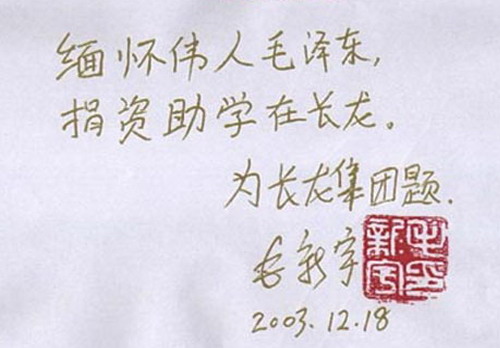 缅怀伟人毛泽东,
捐资助学在长龙。
为长龙集团题.
毛新宇
毛新宇印
2003.12.18